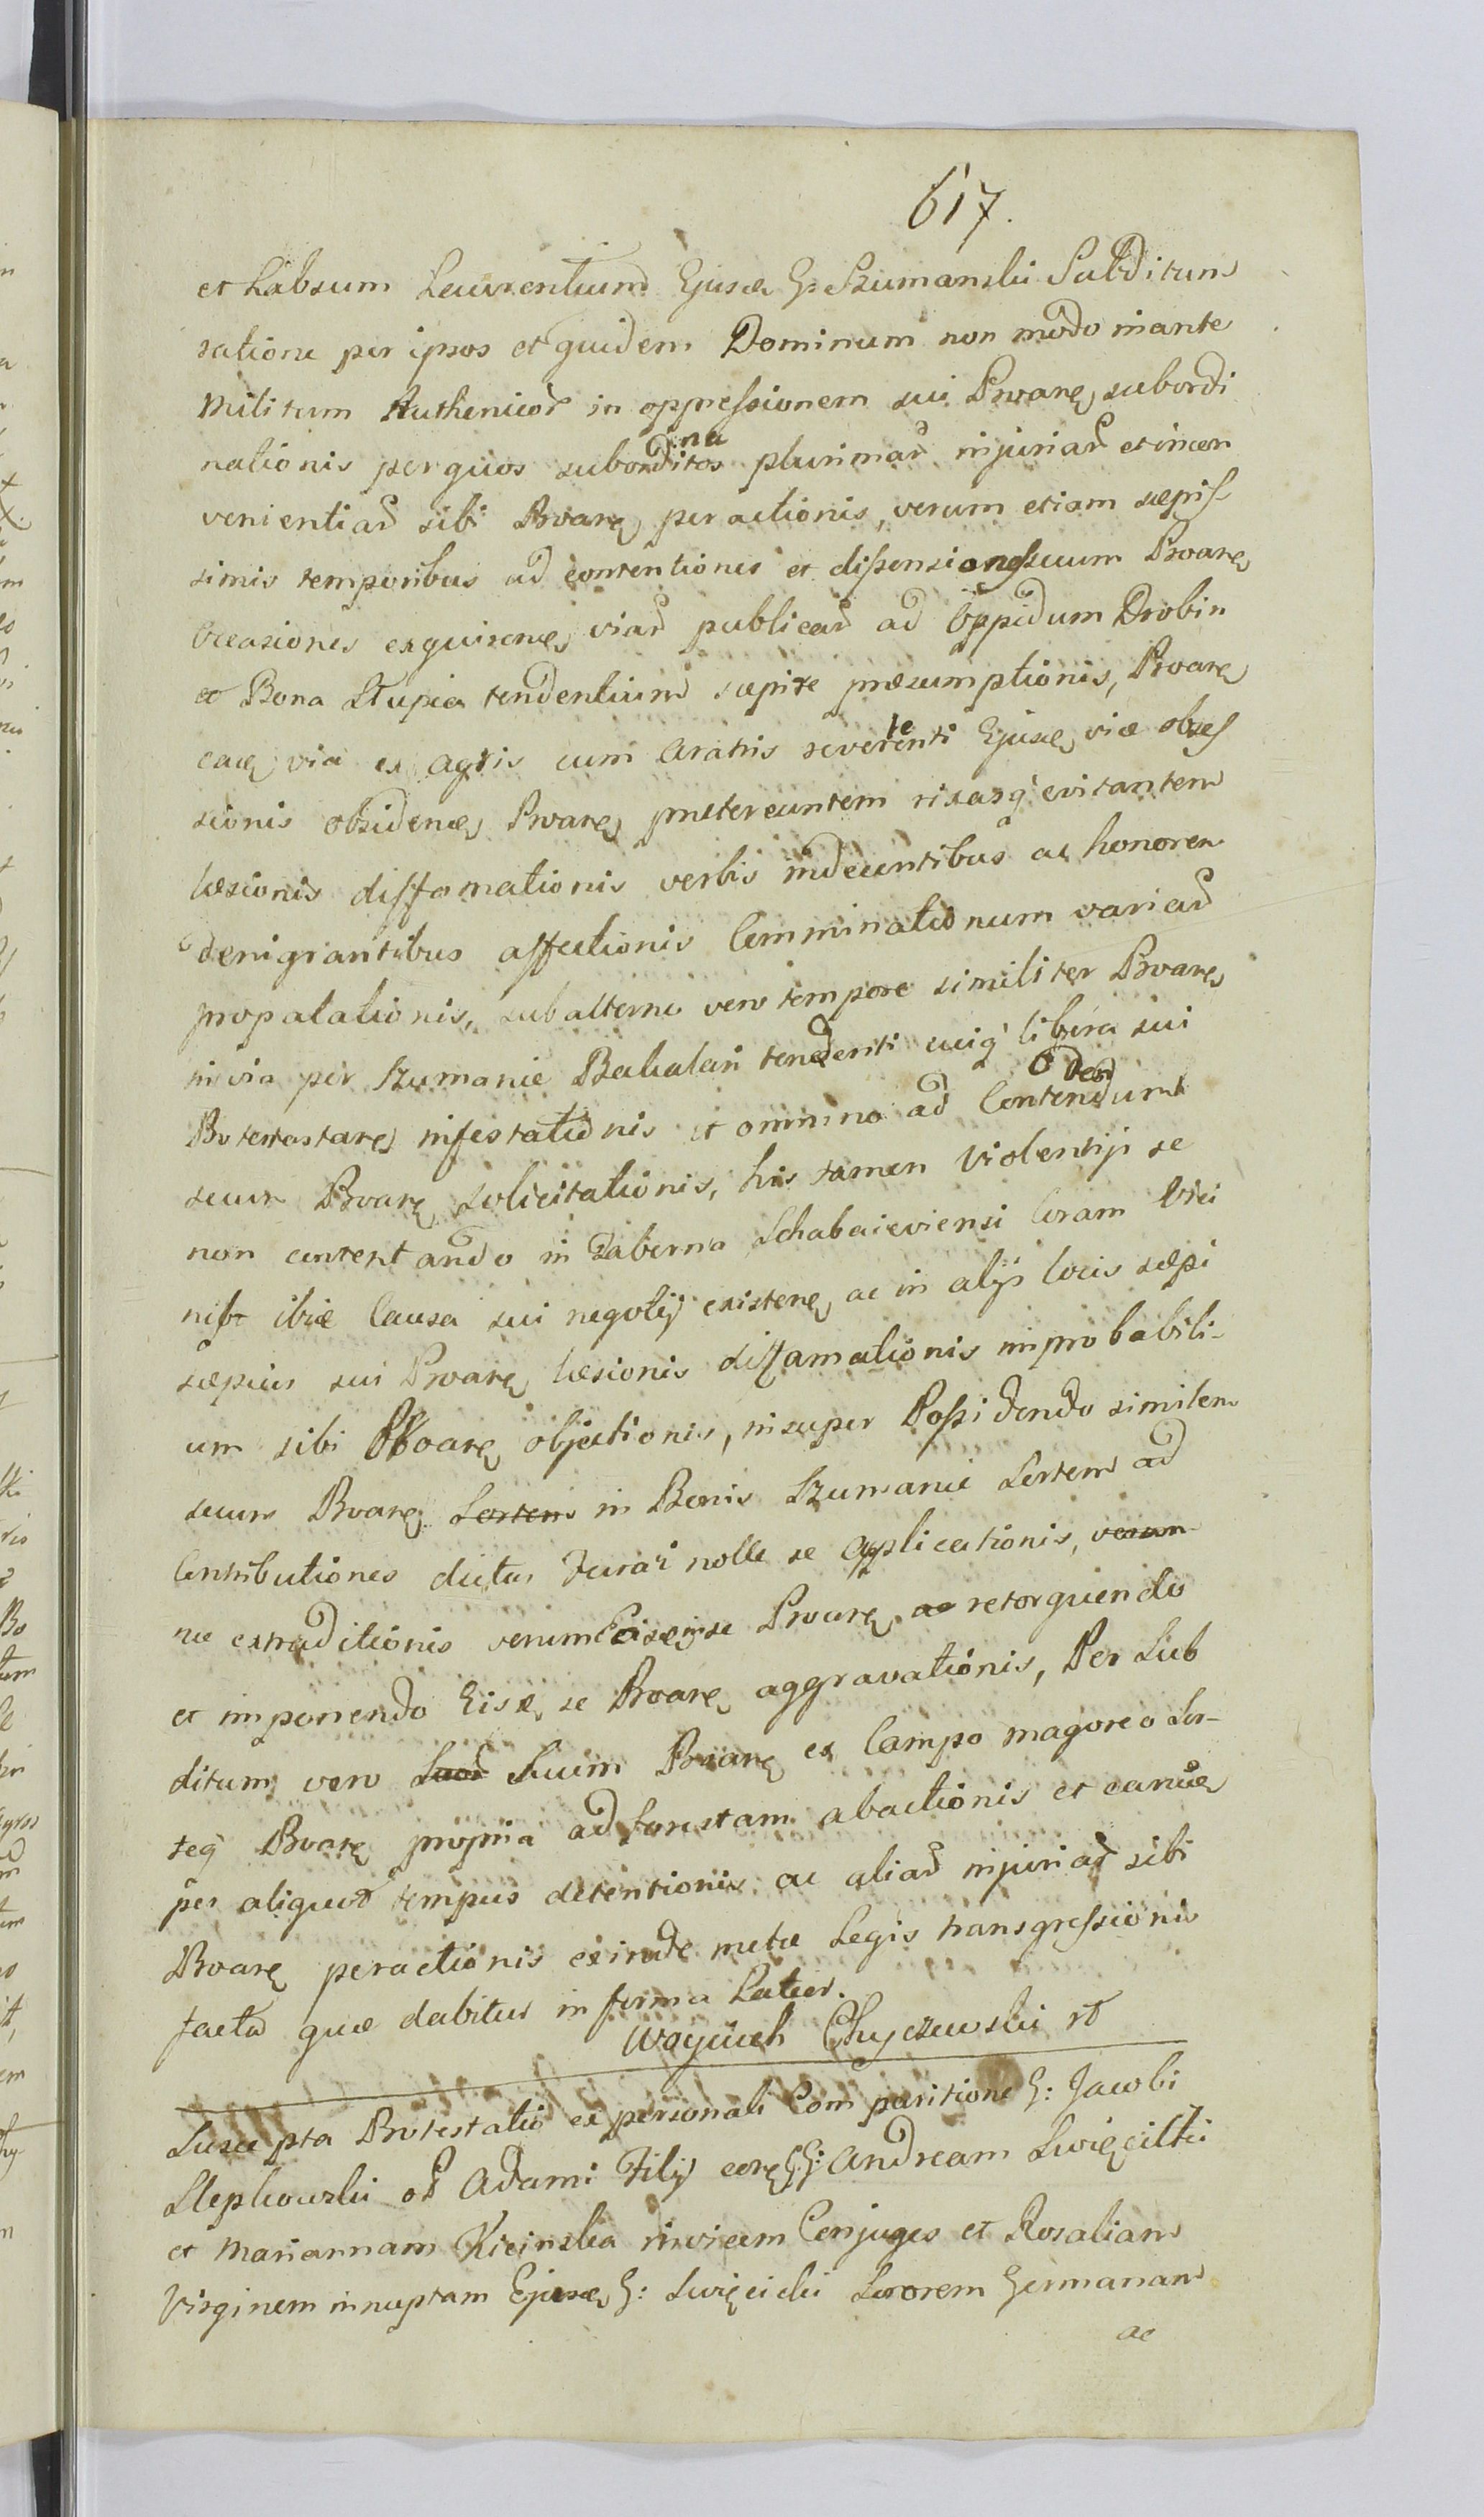 617.
et Labsum Laurentium Ejusd G: Szumanski Subditum
ratione per ipsos et quidem Dominum non modo inante
Militum Ruthenicor in oppressionem sui Proarę subordi
nationis per quos subordinatos plurimar injuriar et incon
venientiar sibi Proarę peractionis, verum etiam sæpis
simis temporibus ad contentiones et dissensiones secum Proarę
Occasiones exquirenę viar publicar ad Oppidum Drobin
et Bona Słupia tendentium sæpire præsumptionis, Proarę
eadę via ex agris cum Aratris revertenti Ejusdę viæ obses
sionis obsidenę Proarę prætereuntem rixasq evitantem
læsionis diffamationis verbis indecentibus ac honorem
denigrantibus affectionis Comminationum variar
propalationis, subalterno vero tempore similiter Proarę
in via per Szumanie Bakalary tendenti eiq libera sui
Protestarę infestationis et omnino ad Contendendum
secum Proarę solicitationis, his tamen violentiji se
non contentando in Taberna Schabaieviensi Coram
ibid Causa sui negotij existenę ac in alijs locis sæpi
sæpius sui Proarę læsionis diffamationis improbabili-
um sibi Proarę objectionis, insuper Possidendo similem
secum Proarę Sortem in Bonis Szumanie Sortem ad
Contributiones dictas Jurari nolle se applicationis, verum
nec extraditionis verum Eisd in se Proarę ac retorquendo
et imponendo Eisd, se Proarę aggravationis, Per Sub
ditum vero Suor Suum Proarę ex Campo Sor-
teq Proarę propria ad forestam abactionis et earudę
per aliquod tempus detentionis ac aliar injuriar sibi
Proarę peractionis exinde metæ Legis transgressionis
facta quæ dabitur in forma Latior.
Woyciech Chyczewski
Suscepta Protestatio ex personali Comparitione G: Jacobi
Stepkowski ol Adami Filij corę GG: Andream Swięcitki
et Mariannam Kicinska invicem Conjuges et Rosaliam
Virginem innuptam Ejusdę G: Swięcicki Sororem Germanam
ac